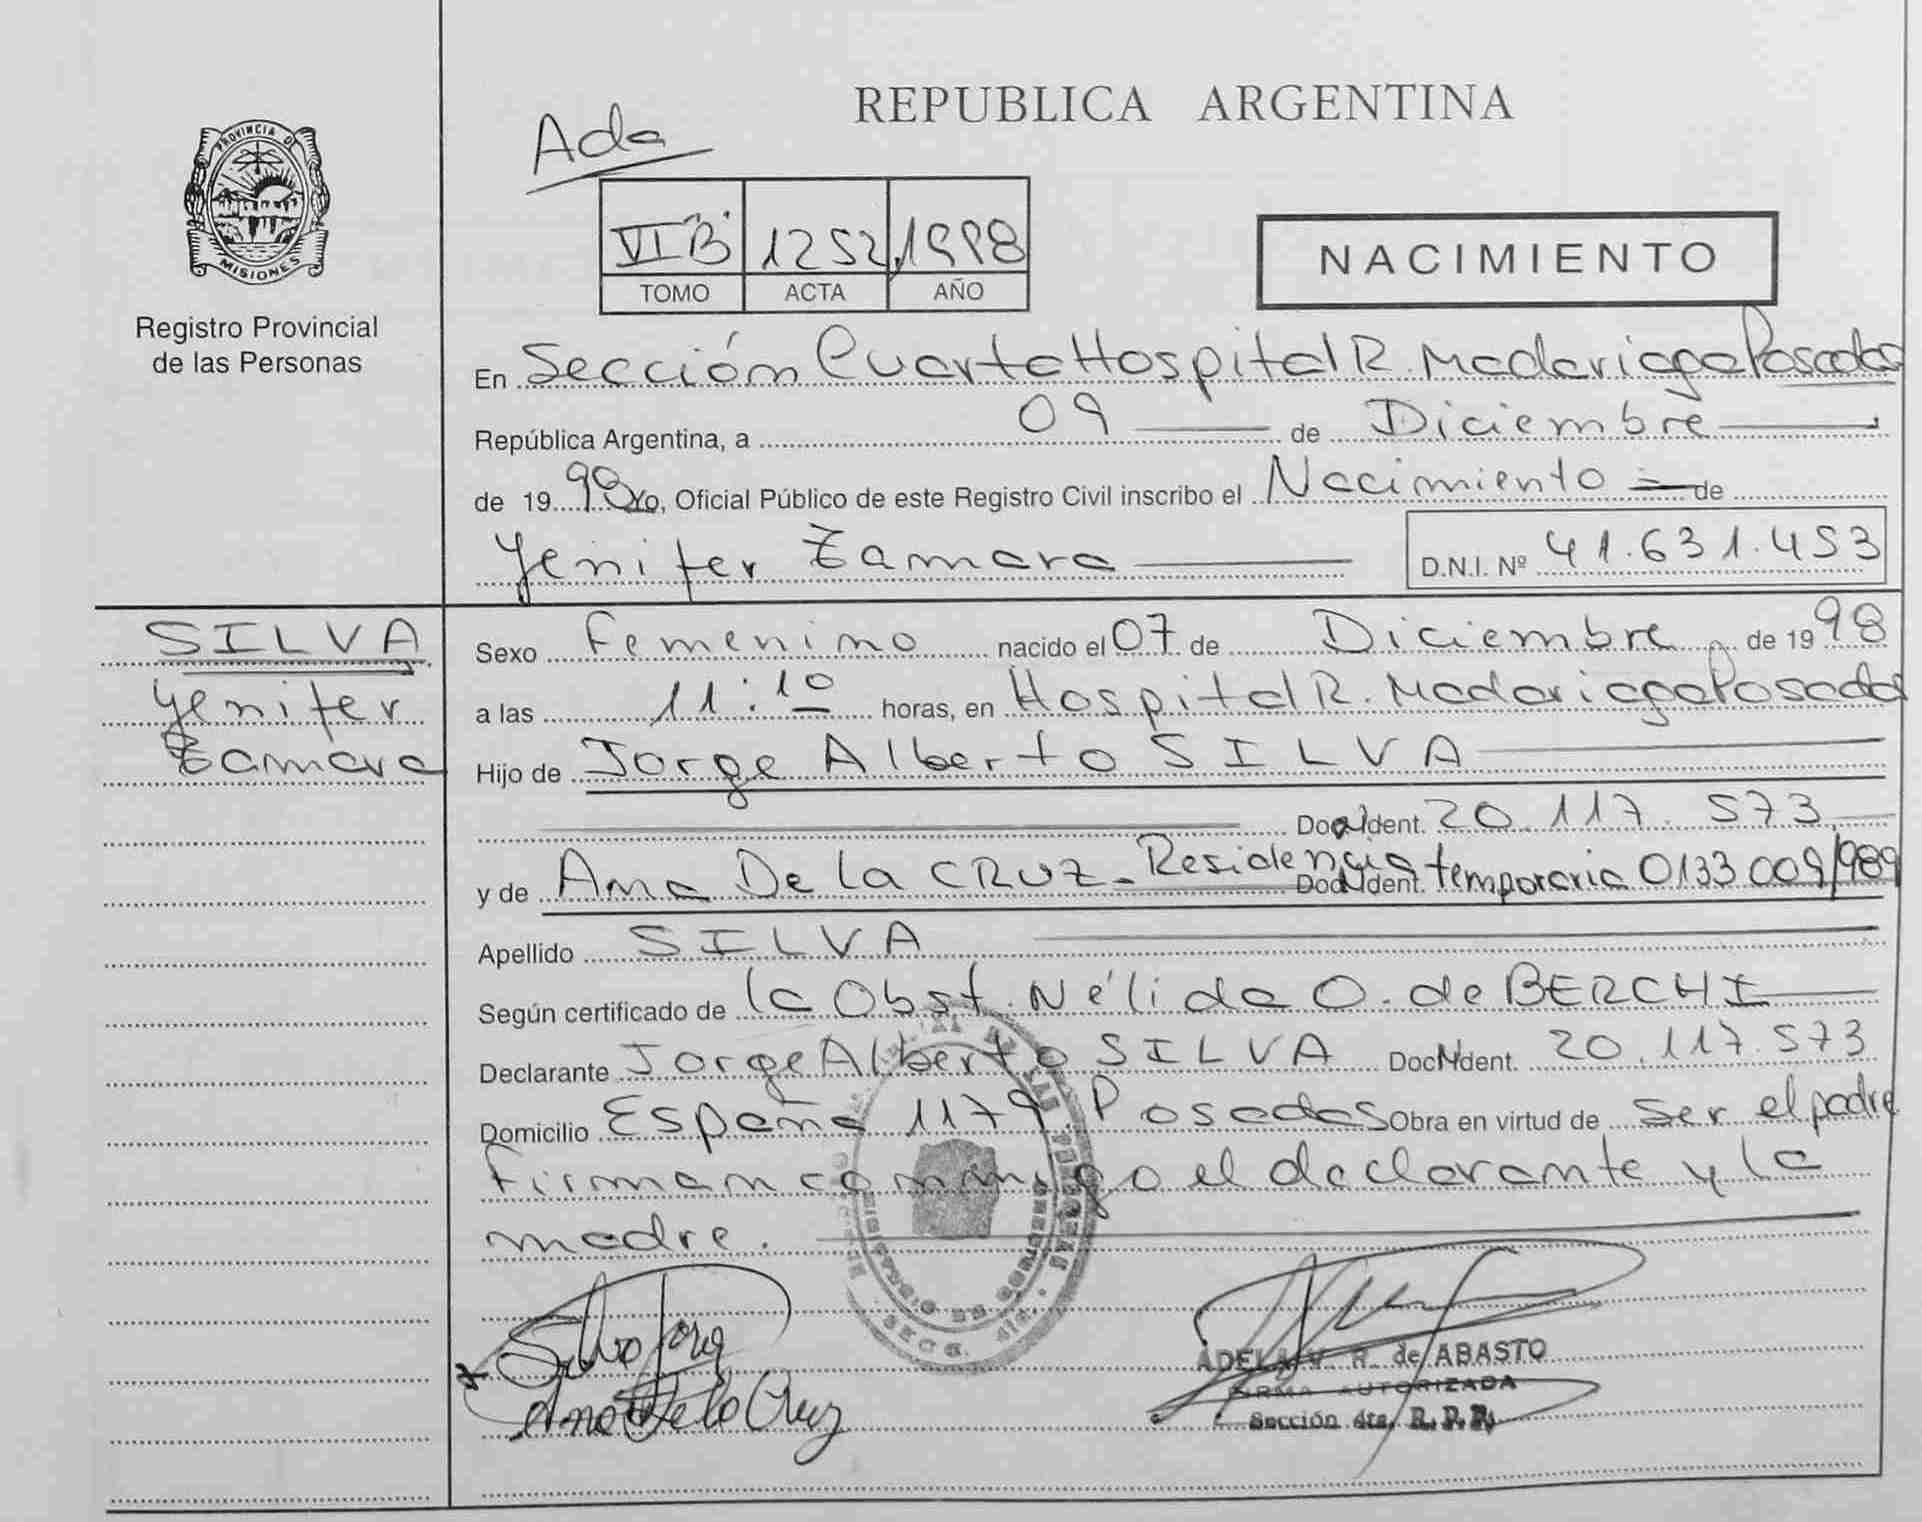 REPUBLICA ARGENTINA
Ada
PROVINCIA DE
MISIONES
Registro Provincial
de las Personas
VI B 1252 1998
TOMO ACTA AÑO
NACIMIENTO
En Sección Cuarta Hospital R. Madariaga Posadas
República Argentina, a 09 de Diciembre
de 1998 Yo, Oficial Público de este Registro Civil inscribo el Nacimiento de
Yenifer Tamara D.N.I. Nº 41.631.453
SILVA
Yenifer
Tamara
Sexo Femenino nacido el 07 de Diciembre de 1998
a las 11:10 horas, en Hospital R. Madariaga Posadas
Hijo de Jorge Alberto SILVA
Doc. Ident. 20.117.573
y de Ana De la CRUZ - Residencia Doc. Ident. temporaria 0133 009/989
Apellido SILVA
Según certificado de la Obst. Nélida O. de BERCHI
Declarante Jorge Alberto SILVA Doc. Ident. 20.117.573
Domicilio España 1179 Posadas Obra en virtud de ser el padre
Firman conmigo el declarante y la
madre.
Silva Jorg
Ana De la Cruz
ADELA V. R. de ABASTO
FIRMA AUTORIZADA
Sección 4ta. R.P.P.